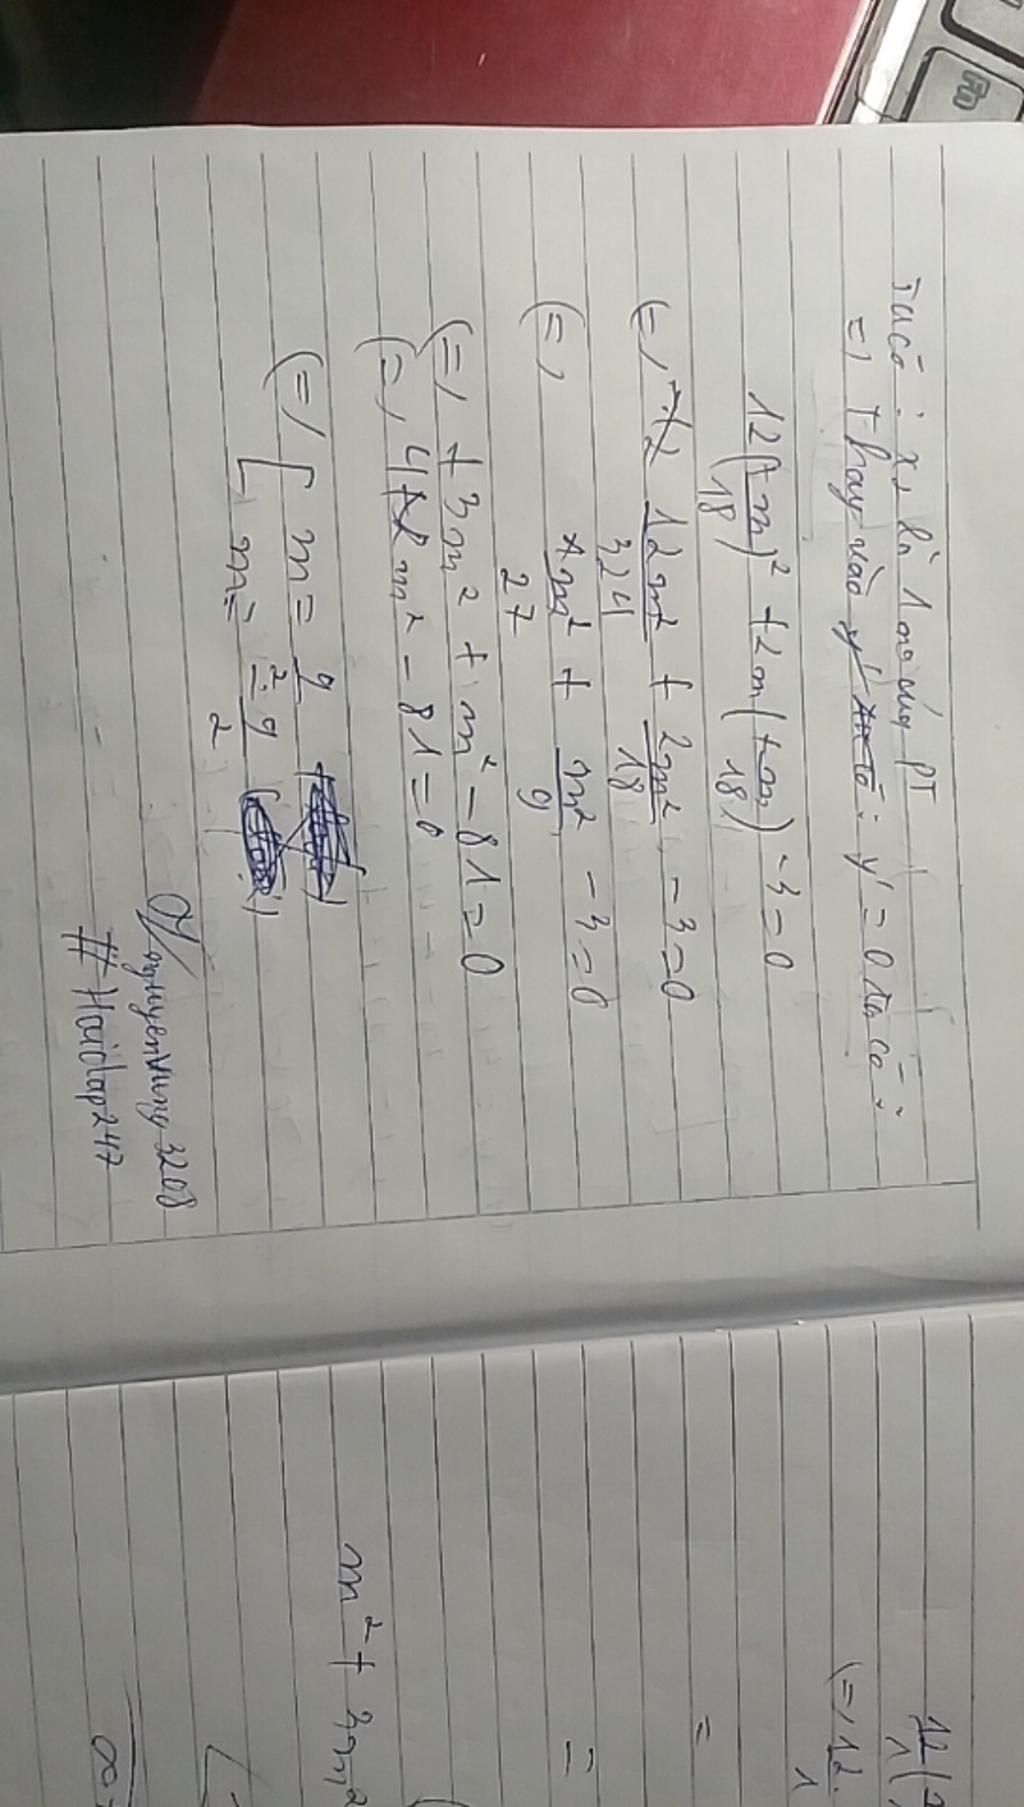 Ta có : x₂ là 1 no của PT
=) Thay vào y' : y' = 0 ta có :
12(+m/18)² + 2m(+m/18) - 3 = 0
(=) 12m²/324 + 2m²/18 - 3 = 0
(=) m²/27 + m²/9 - 3 = 0
(=) +3m² + m² - 81 = 0
(=) 4m² - 81 = 0
(=) [ m = 9/2
m = -9/2
nguyenhung3268
#Hoidap247
12
(=) 12.
1
=
=
m² + 3m²